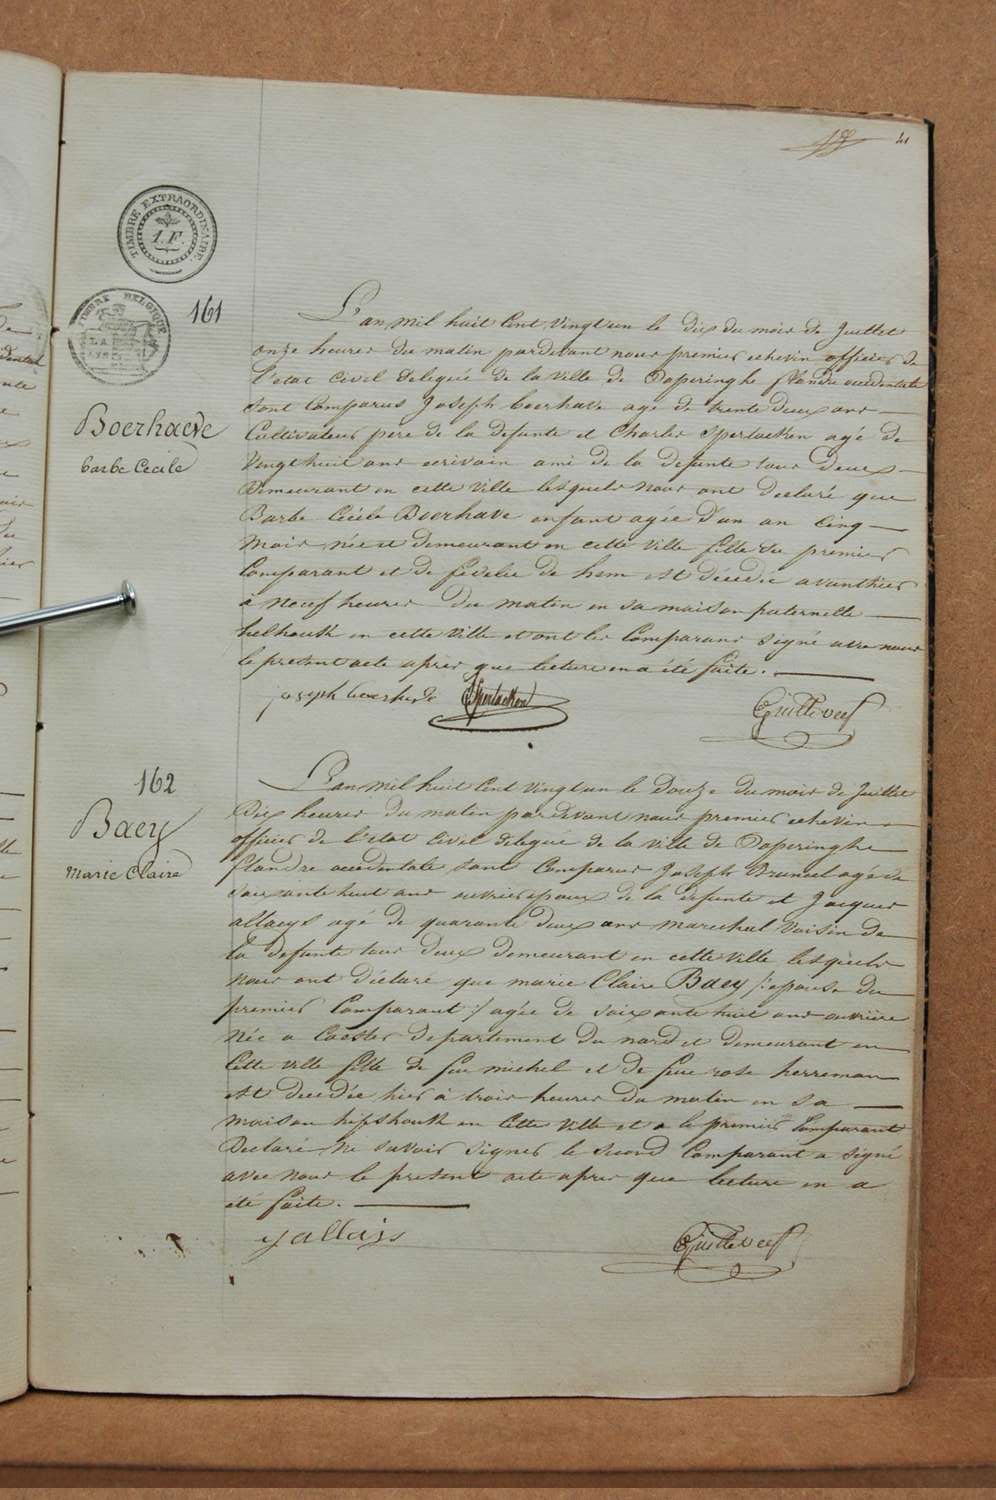 41
TIMBRE EXTRAORDINAIRE
1.F.
TIMBRE BELGIQUE
161
Boerhaeve
barbe Cecile
L'an mil huit Cent vingt un le dix du mois de Juillet
onze heures du matin pardevant nous premier echevin officier de
l'etat Civil delegué de la ville de Poperinghe flandre occidentale
sont Comparus Joseph boerhave agé de trente deux ans
Cultivateur pere de la defunte et Charles Spertackon agé de
vingt huit ans ecrivain ami de la defunte tous deux
demeurant en cette ville lesquels nous ont declaré que
Barbe Cécile Boerhave enfant agée d'un an Cinq
mois, née et demeurant en cette ville fille du premier
Comparant et de fidelie de ham est décédée avanthier
à neuf heures du matin en sa maison paternelle
helhouck en cette ville et ont les Comparans signé avec nous
le present acte après que lecture en a été faite.
joseph boerhave
162
Baey
Marie Claire
L'an mil huit Cent vingt un le douze du mois de Juillet
dix heures du matin pardevant nous premier echevin
officier de l'etat Civil delegué de la ville de Poperinghe
flandre occidentale sont Comparus Joseph Brunel agé de
soixante huit ans ouvrier epoux de la defunte et Jacques
allaeys agé de quarante deux ans marechal voisin de
la defunte tous deux demeurant en cette ville lesquels
nous ont déclaré que marie Claire Baey /: epouse du
premier Comparant :/ agée de soixante huit ans ouvrière
née a Caester departement du nord et demeurant en
Cette ville fille de feu michel et de feue rose herreman
est decedée hier à trois heures du matin en sa
maison hipshouck en Cette ville et a le premier Comparant
Declaré ne savoir signer le second Comparant a signé
avec nous le present acte apres que lecture en a
été faite.
j allays